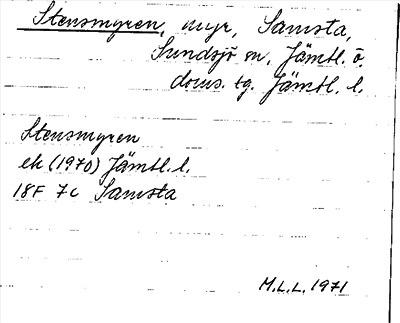 Stensmyren, myr, Samsta,
Sundsjö sn, Jämtl. ö.
doms. tg. Jämtl. l.
Stensmyren
ek (1970) Jämtl. l.
18F 7c Samsta
M.L.L. 1971